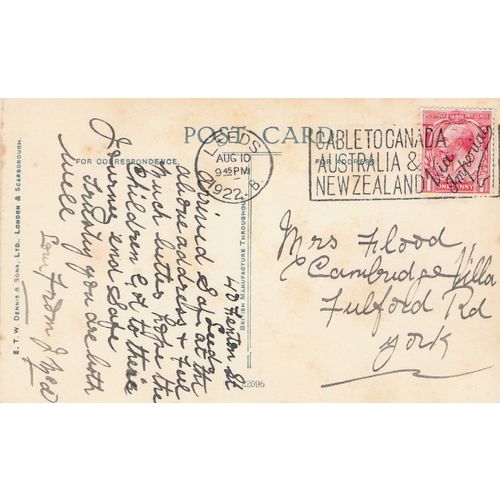 POST CARD
FOR CORRESPONDENCE.
FOR ADDRESS.
LEEDS
AUG 10
9 45 PM
1922
B.
CABLE TO CANADA
AUSTRALIA &
NEW ZEALAND
Via
Imperial
POSTAGE REVENUE
ONE PENNY
49 Fenton St
Leeds
Arrived safe at the
above address & feel
much better hope the
Children got to there
Journey end safe
Trusting you are both
well
Love from J
Mrs Flood
Cambridge Villa
Fulford Rd
York
E. T. W. DENNIS & SONS, LTD. LONDON & SCARBOROUGH.
BRITISH MANUFACTURE THROUGHOUT
22096